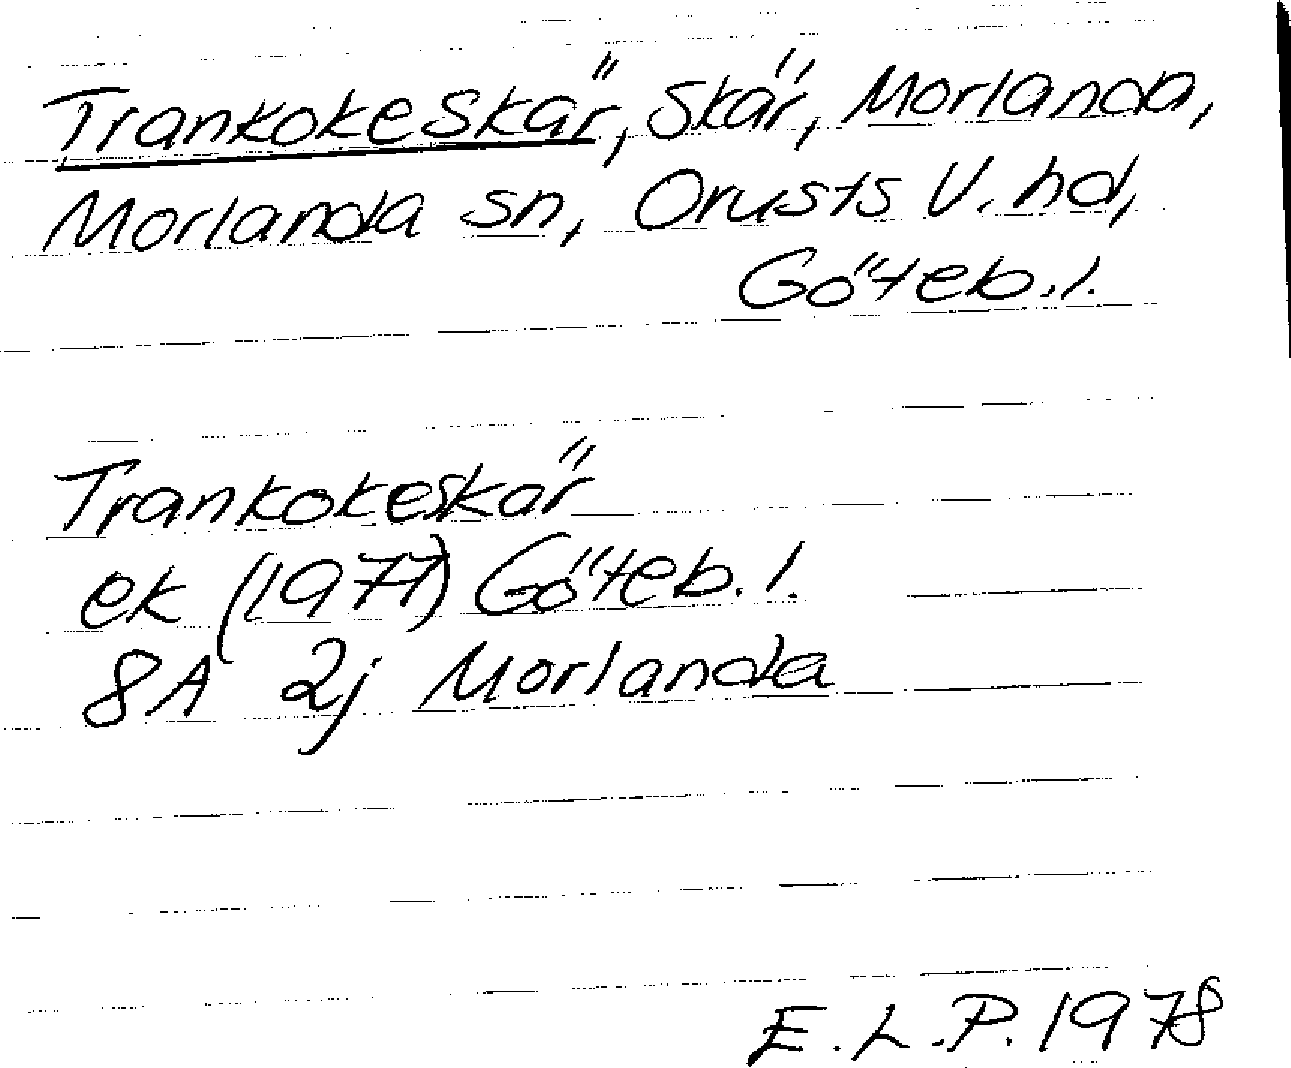 Trankokeskär, skär, Morlanda,
Morlanda sn, Orusts V. hd,
Göteb. l.
Trankokeskär
ek (1977) Göteb. l.
8A 2j Morlanda
E. L. P. 1978